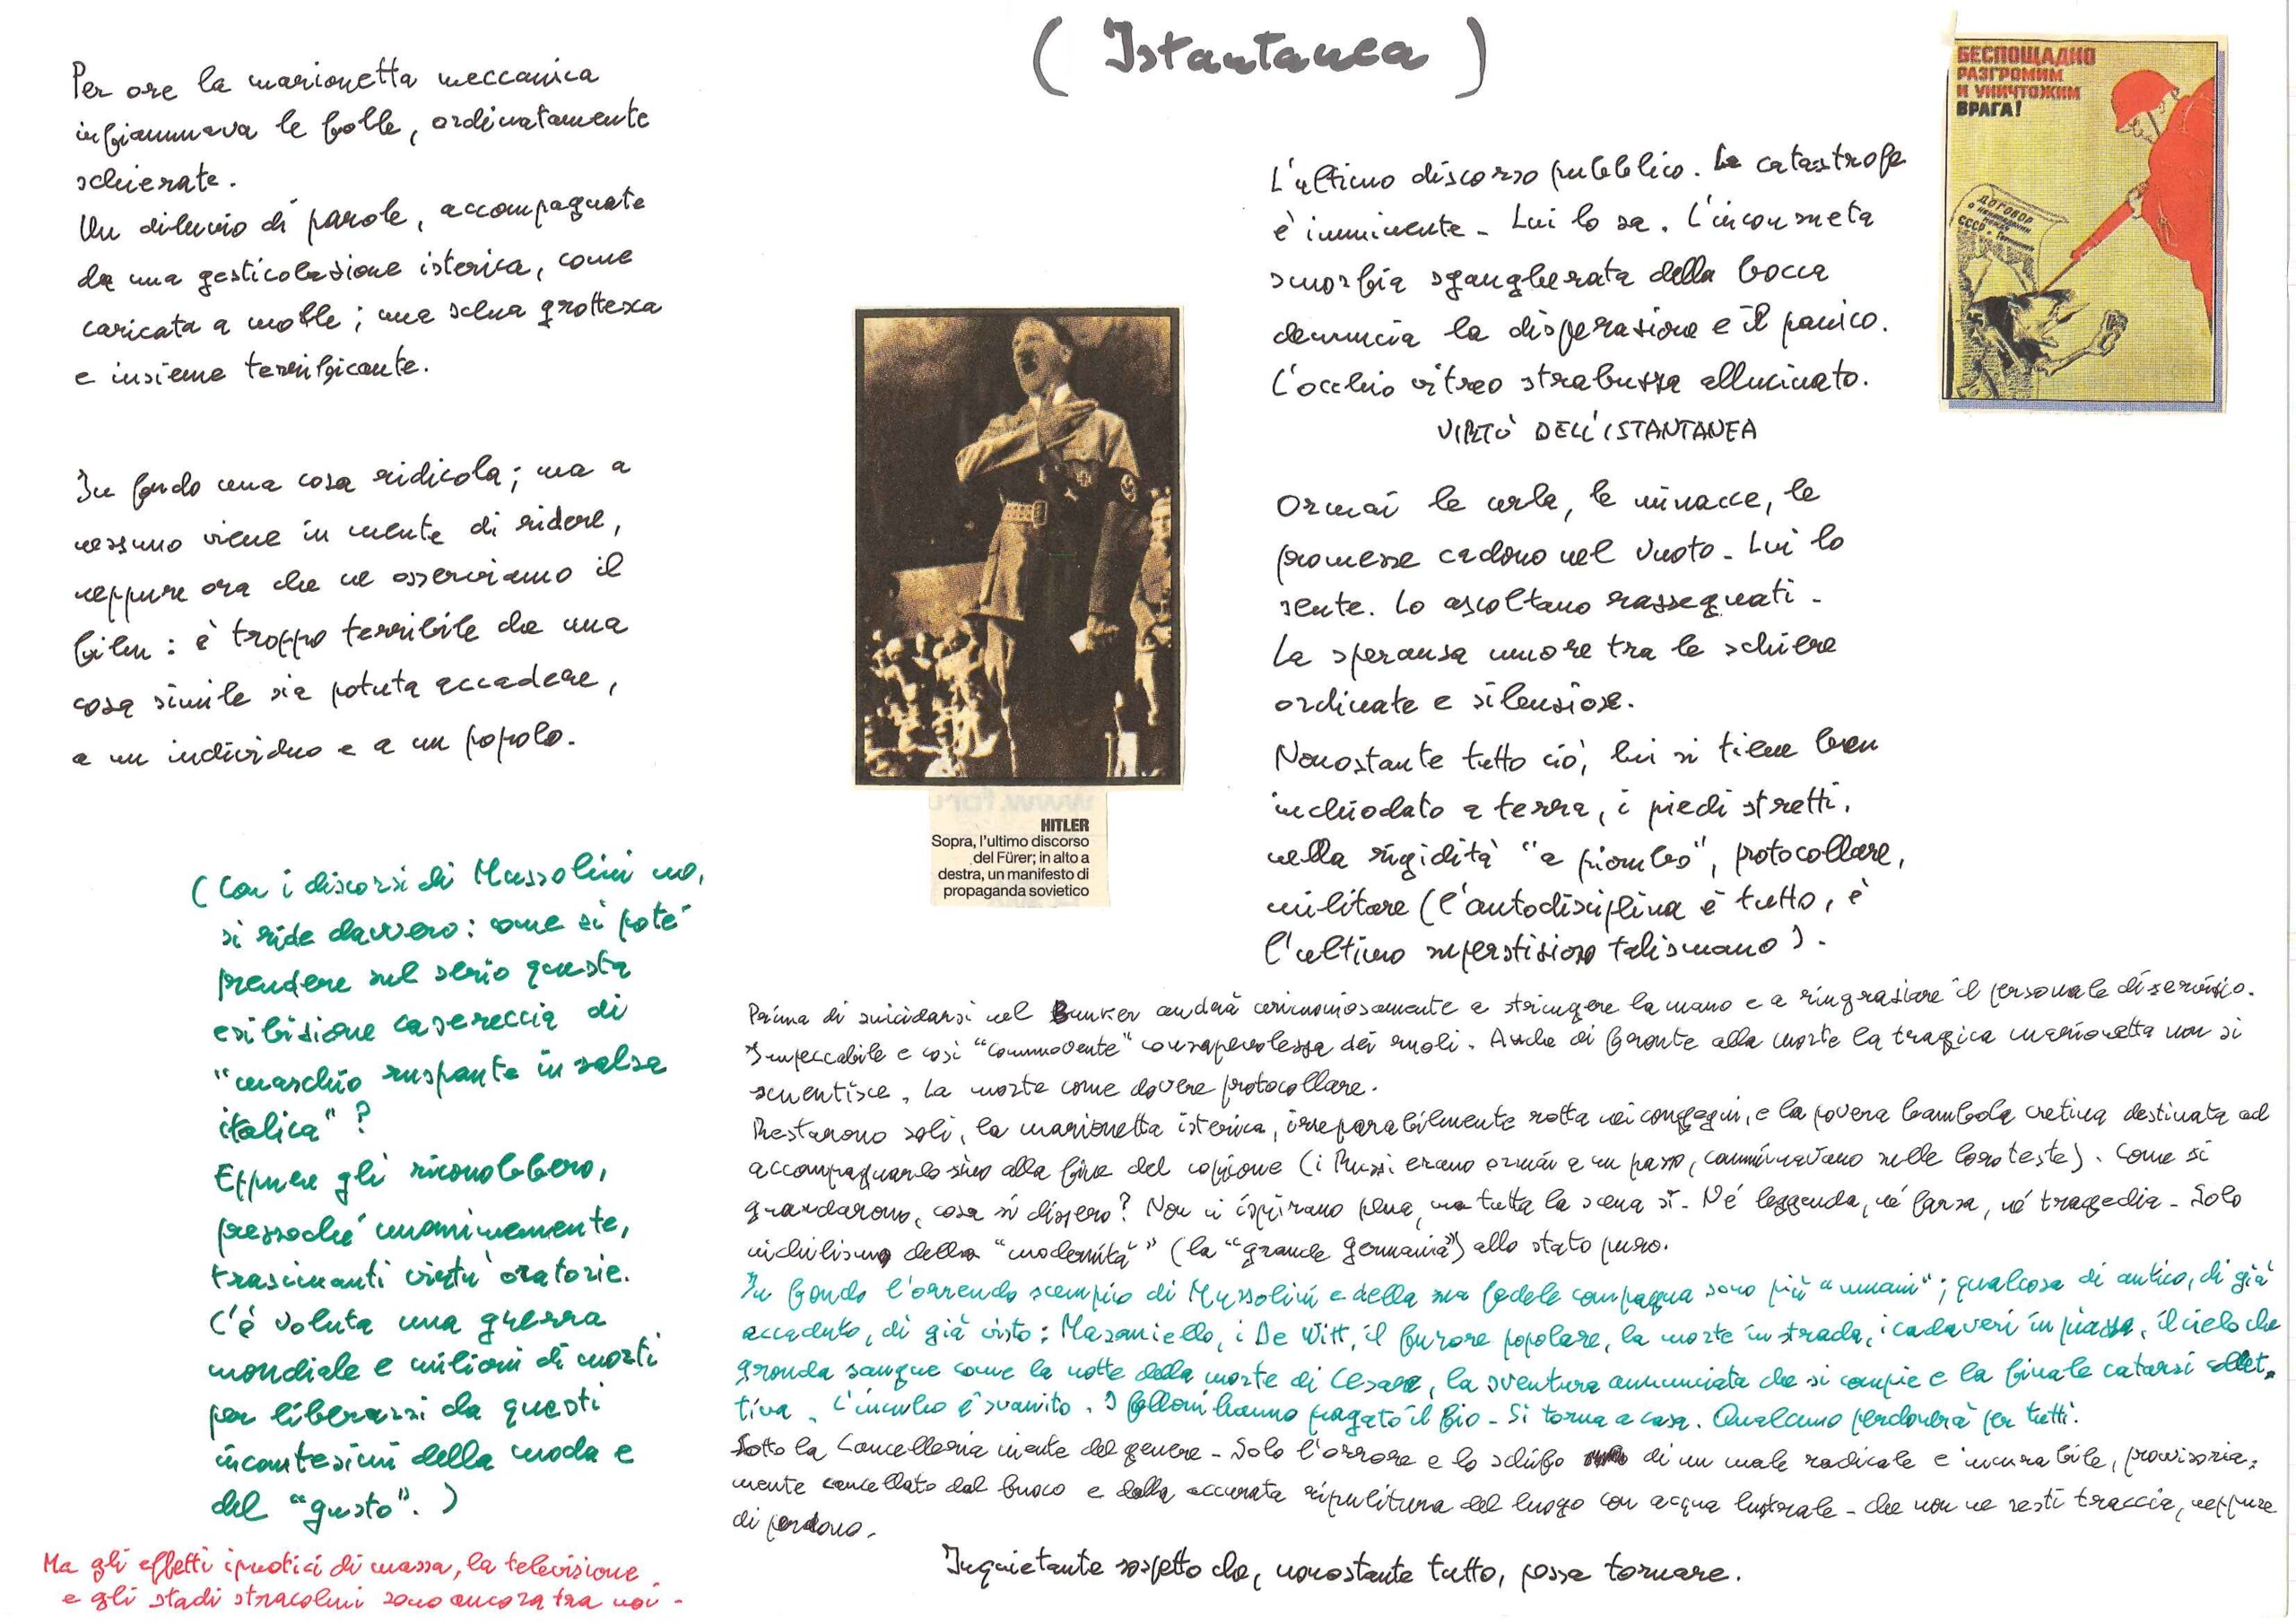 ( Istantanea )
Per ore la marionetta meccanica
infiammava le folle, ordinatamente
schierate.
Un diluvio di parole, accompagnate
da una gesticolazione isterica, come
caricata a molle; una scena grottesca
e insieme terrificante.
In fondo una cosa ridicola; ma a
nessuno viene in mente di ridere,
neppure ora che ne osserviamo il
film: è troppo terribile che una
cosa simile sia potuta accadere,
a un individuo e a un popolo.
(Con i discorsi di Mussolini no,
si ride davvero: come si poté
prendere sul serio questa
esibizione casereccia di
"maschio ruspante in salsa
italica"?
Eppure gli riconobbero,
pressoché unanimemente,
trascinanti virtù oratorie.
C'è voluta una guerra
mondiale e milioni di morti
per liberarsi da questi
incantesimi della moda e
del "gusto".)
Ma gli effetti ipnotici di massa, la televisione
e gli stadi stracolmi sono ancora tra noi -
HITLER
Sopra, l'ultimo discorso
del Fürer; in alto a
destra, un manifesto di
propaganda sovietico
L'ultimo discorso pubblico. La catastrofe
è imminente - Lui lo sa. L'inconsueta
smorfia sgangherata della bocca
denuncia la disperazione e il panico.
L'occhio vitreo strabuzza allucinato.
VIRTÙ DELL'ISTANTANEA
Ormai le urla, le minacce, le
promesse cadono nel vuoto - Lui lo
sente. Lo ascoltano rassegnati -
La speranza muore tra le schiere
ordinate e silenziose.
Nonostante tutto ciò, lui si tiene ben
inchiodato a terra, i piedi stretti,
nella rigidità "a piombo", protocollare,
militare (l'autodisciplina è tutto, è
l'ultimo superstizioso talismano).
БЕСПОЩАДНО
РАЗГРОМИМ
И УНИЧТОЖИМ
ВРАГА!
ДОГОВОР
о ненападении
СССР и
Prima di suicidarsi nel Bunker andrà cerimoniosamente a stringere la mano e a ringraziare il personale di servizio.
Impeccabile e così "commovente" consapevolezza dei ruoli. Anche di fronte alla morte la tragica marionetta non si
smentisce. La morte come dovere protocollare.
Restarono soli, la marionetta isterica, irreparabilmente rotta nei congegni, e la povera bambola cretina destinata ad
accompagnarlo sino alla fine del copione (i Russi erano ormai a un passo, camminavano sulle loro teste). Come si
guardarono, cosa si dissero? Non ci ispirano pena, ma tutta la scena sì - Né leggenda, né farsa, né tragedia - Solo
nichilismo della "modernità" (la "grande Germania") allo stato puro.
In fondo l'orrendo scempio di Mussolini e della sua fedele compagna sono più "umani"; qualcosa di antico, di già
accaduto, di già visto: Masaniello, i De Witt, il furore popolare, la morte in strada, i cadaveri in piazza, il cielo che
gronda sangue come la notte della morte di Cesare, la sventura annunciata che si compie e la finale catarsi collet-
tiva. L'incubo è svanito. I felloni hanno pagato il fio - Si torna a casa. Qualcuno perdonerà per tutti.
Sotto la Cancelleria niente del genere - Solo l'orrore e lo schifo di un male radicale e incurabile, provvisoria-
mente cancellato dal fuoco e dalla accurata ripulitura del luogo con acqua lustrale - che non ne resti traccia, neppure
di perdono.
Inquietante sospetto che, nonostante tutto, possa tornare.